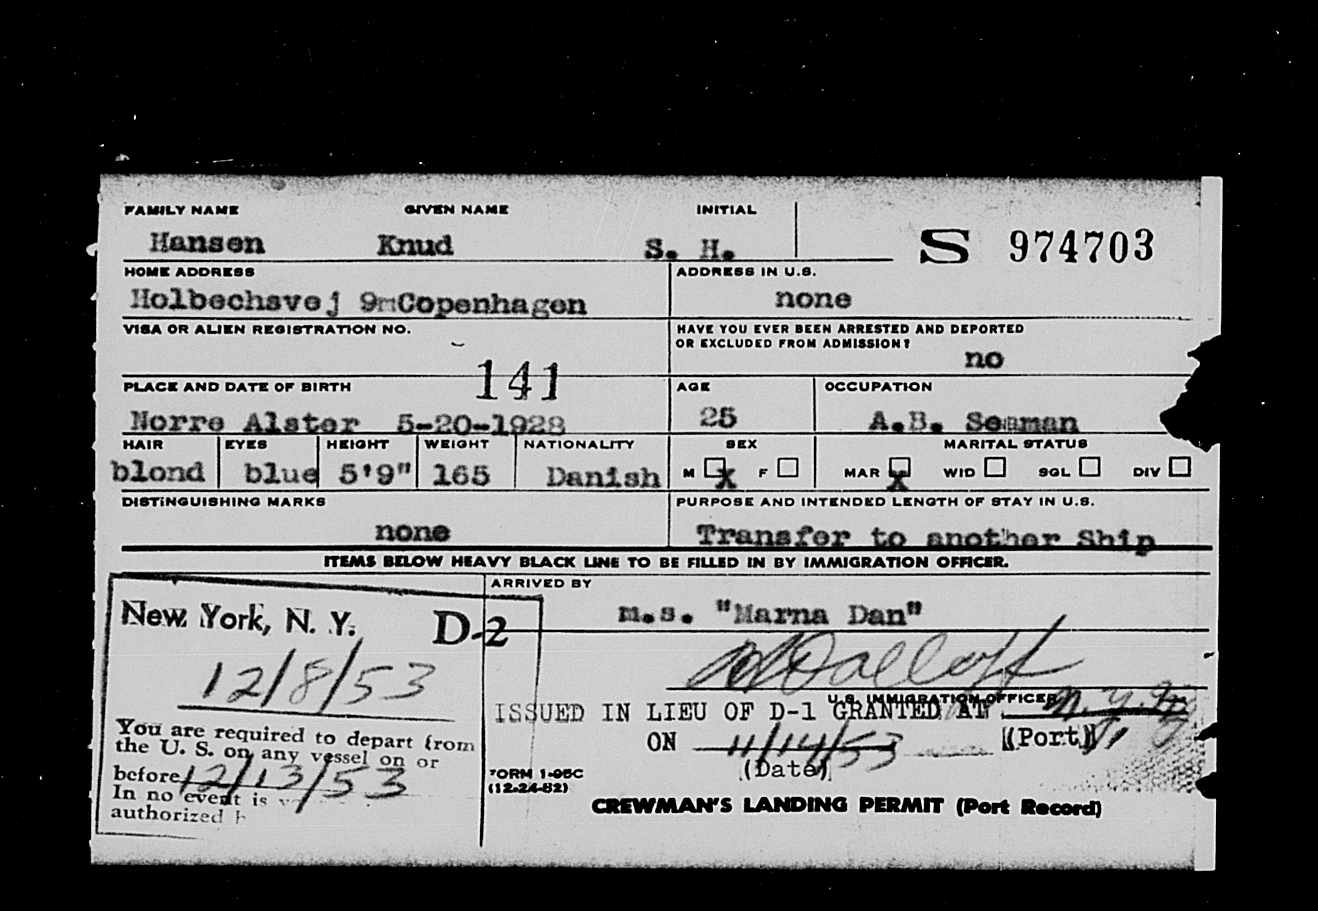 FAMILY NAME GIVEN NAME INITIAL
Hansen Knud S. H. S 974703
HOME ADDRESS ADDRESS IN U.S.
Holbechsvej 9 Copenhagen none
VISA OR ALIEN REGISTRATION NO. HAVE YOU EVER BEEN ARRESTED AND DEPORTED
OR EXCLUDED FROM ADMISSION?
141 no
PLACE AND DATE OF BIRTH AGE OCCUPATION
Norre Alster 5-20-1928 25 A.B. Seaman
HAIR EYES HEIGHT WEIGHT NATIONALITY SEX MARITAL STATUS
blond blue 5'9" 165 Danish M X F MAR X WID SGL DIV
DISTINGUISHING MARKS PURPOSE AND INTENDED LENGTH OF STAY IN U.S.
none Transfer to another Ship
ITEMS BELOW HEAVY BLACK LINE TO BE FILLED IN BY IMMIGRATION OFFICER.
ARRIVED BY
m.s. "Marna Dan"
New York, N. Y. D-2
12/8/53
U.S. IMMIGRATION OFFICER
You are required to depart from
the U. S. on any vessel on or
before 12/13/53
In no event is
authorized
ISSUED IN LIEU OF D-1 GRANTED AT N.Y. N.Y.
ON 11/14/53 (Port)
(Date)
FORM I-95C
(12-24-52)
CREWMAN'S LANDING PERMIT (Port Record)